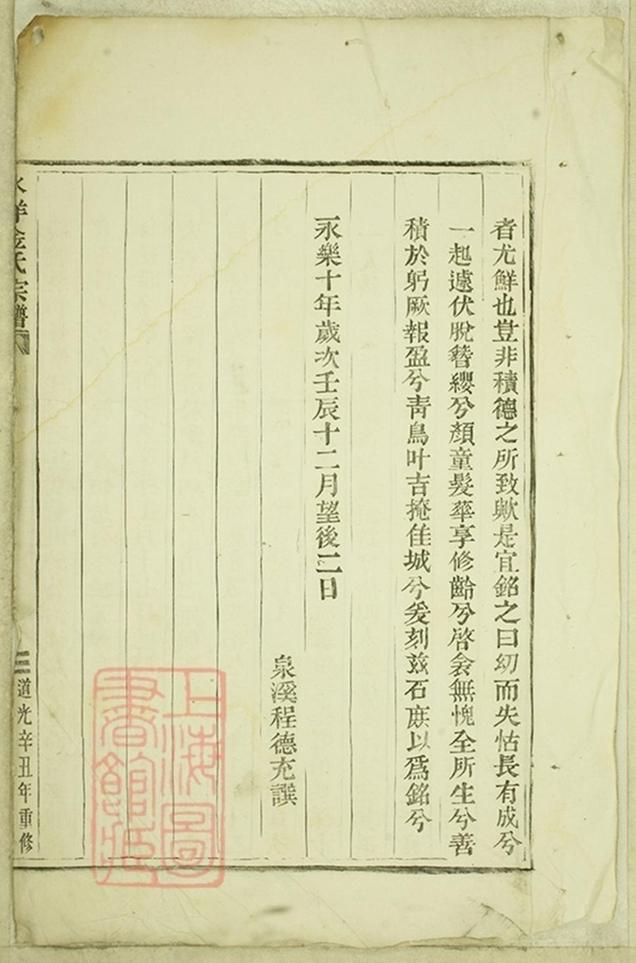 者尤鮮也豈非積德之所致歟是宜銘之曰幼而失怙長有成兮
一起遽伏脫簪纓兮顏童髮華享修齡兮啓衾無愧全所生兮善
積於躬厥報盈兮青烏叶吉掩佳城兮爰刻玆石庶以爲銘兮
永樂十年歲次壬辰十二月望後二日
泉溪程德充譔
羊金氏宗譜
道光辛丑年重修
上海圖
書館藏